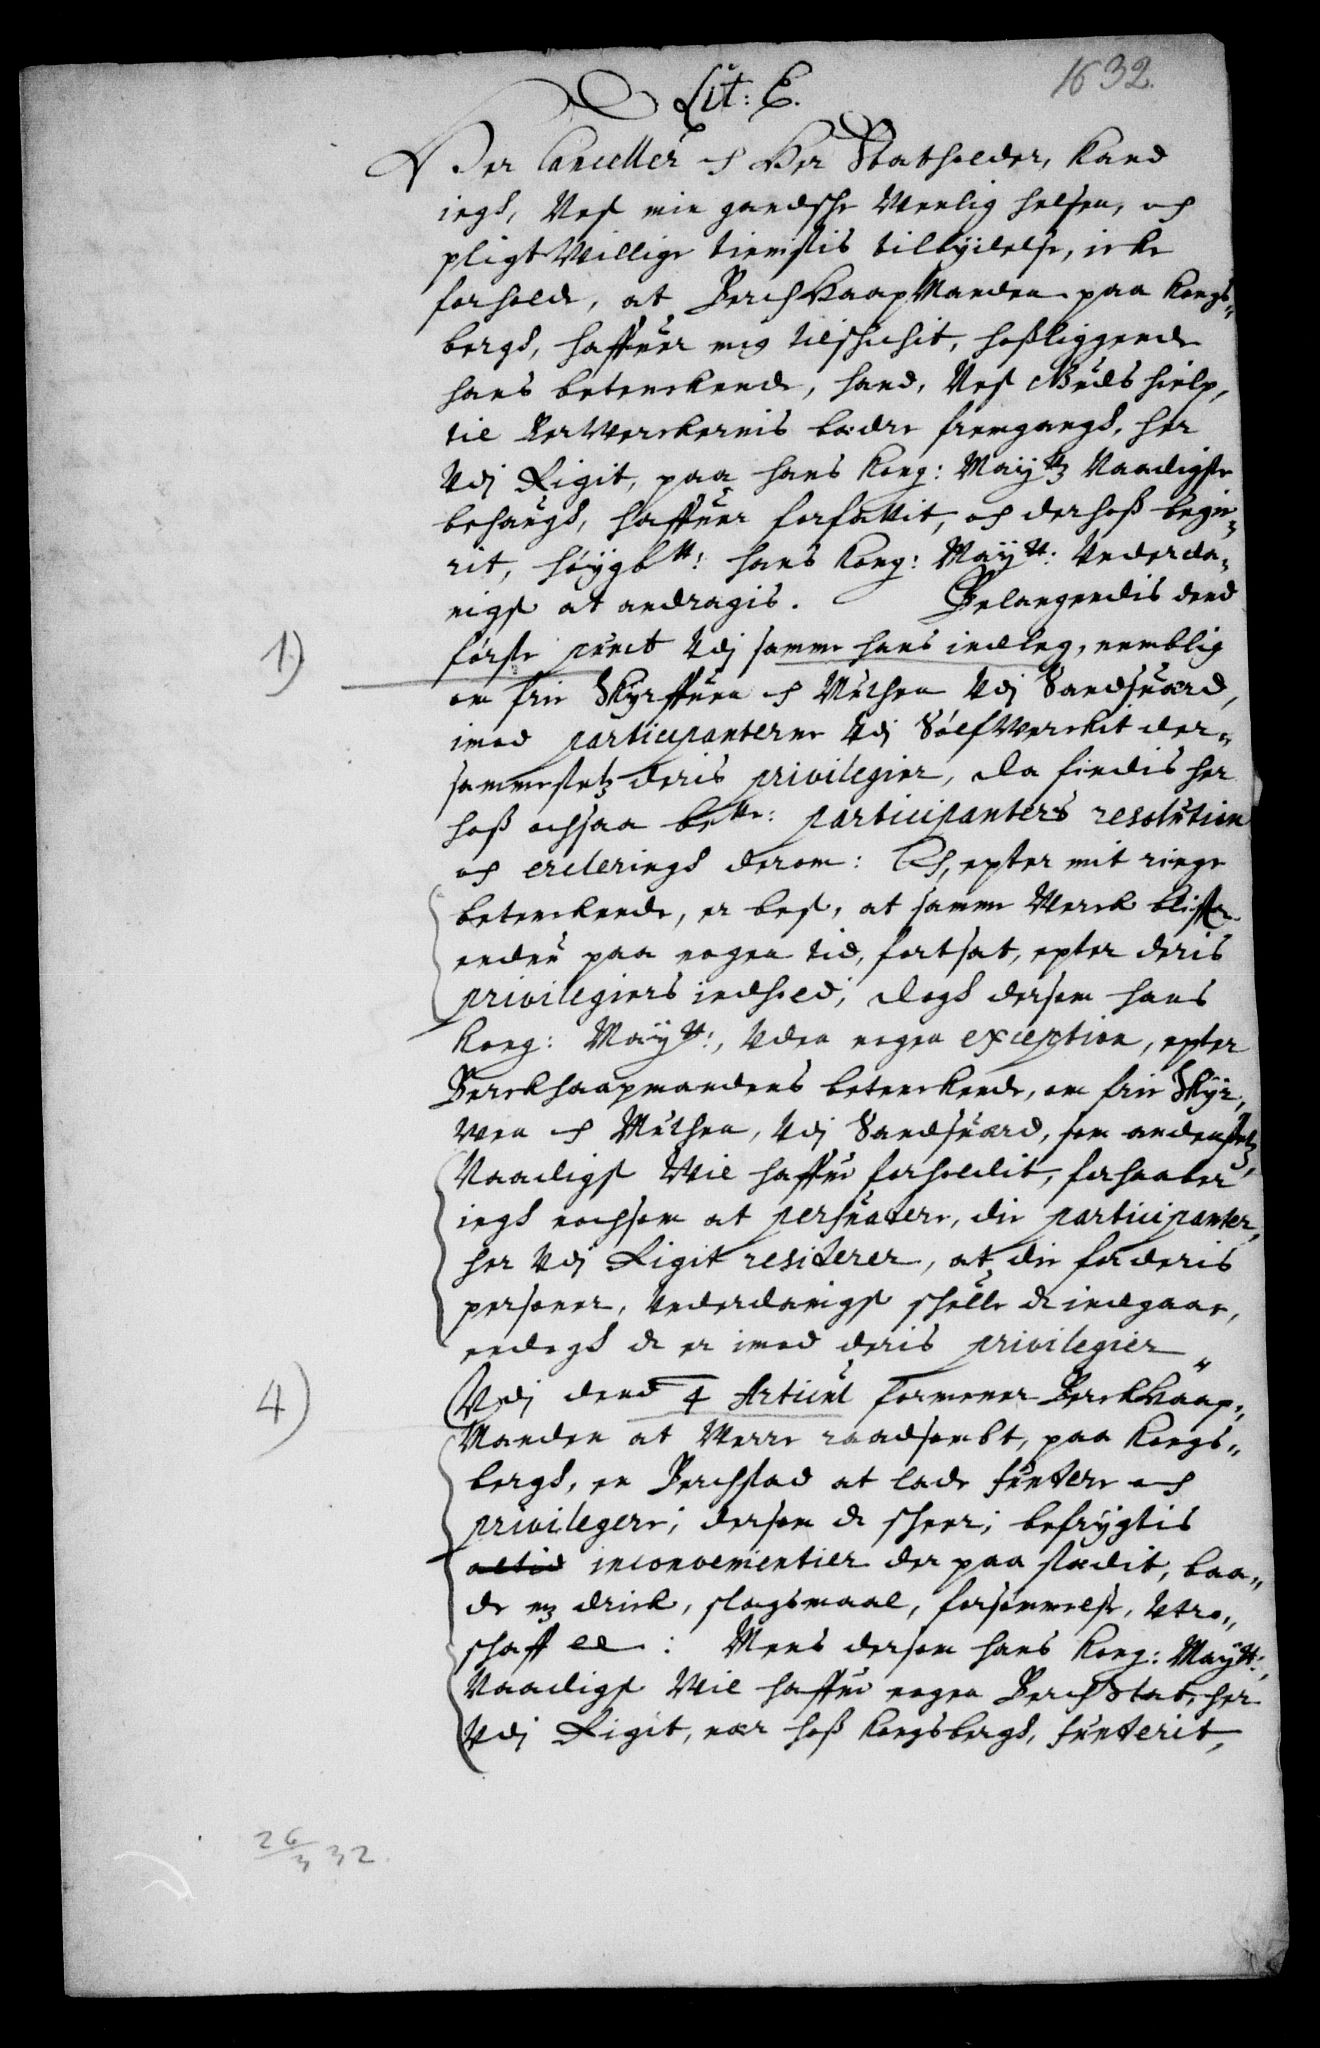 1632.
Lit: E.
Her Canceller och Her Statholder, kand
iegh, Nest min gandsche Wenlig helsen, och
pligt Willige tienistis tilbydelse, icke
forholde, at BerchHaapManden paa Kongs„
bergh, haffuer mig tilschichit, hoßliggende
hans betenckende, hand, Nest Guds hielp,
til BerWerckernis bædre fremgangh, her
Udj Rigit, paa hans Kong: Maytz Naadigste
behaugh, haffuer forfattit, och derhoß begie„
rit, höygbtt: hans Kong: Maytt: Underda„
nigst at andragis. Belangendis dend
1) förste punct Udj samme hans indleg, nemblig
om frie Skyrffuen och Muthen Udj Sandsuærd,
imod participanterne Udj SölfWerckit der„
sammestetz deris privilegier, da findis her
hoß ochsaa bete: participanters resolution
och ercleringh derom: Och, epter mit ringe
betenckende, er best, at samme Werck bliffr
endnu paa nogen tid, fortsat, epter deris
privilegiers indhold; dogh dersom hans
Kong: Maytt:, Uden nogen exception, epter
Berckhaapmandens betenckende, om frie Skyr„
wen och Muthen, Udj Sandsuærd, som andenstetz,
Naadigst Wil haffue forholdit, forhaaber
iegh nochsom at persuadere, die participanter,
her Udj Rigit residerer, at die for deris
personer, Underdanigst schulle de indgaae,
endogh de er imod deris privilegier„
4) Udj dend 4 Articul formener BerckHaap„
Manden at Werre raadsombt, paa Kongs„
bergh, en Berchstad at lade fundere och
privilegere; dersom de scheer; befrygtis
altid inconvenientier der paa stædit, baa„
de mz drick, slagsmaal, forsömmelse, Utro„
schaff etc: Mens dersom hans Kong: Maytt:,
Naadigst Wil haffue nogen Berch Stad, her
Udj Rigit, nær hoß Kongsbergh, funderit,
26/3 32.